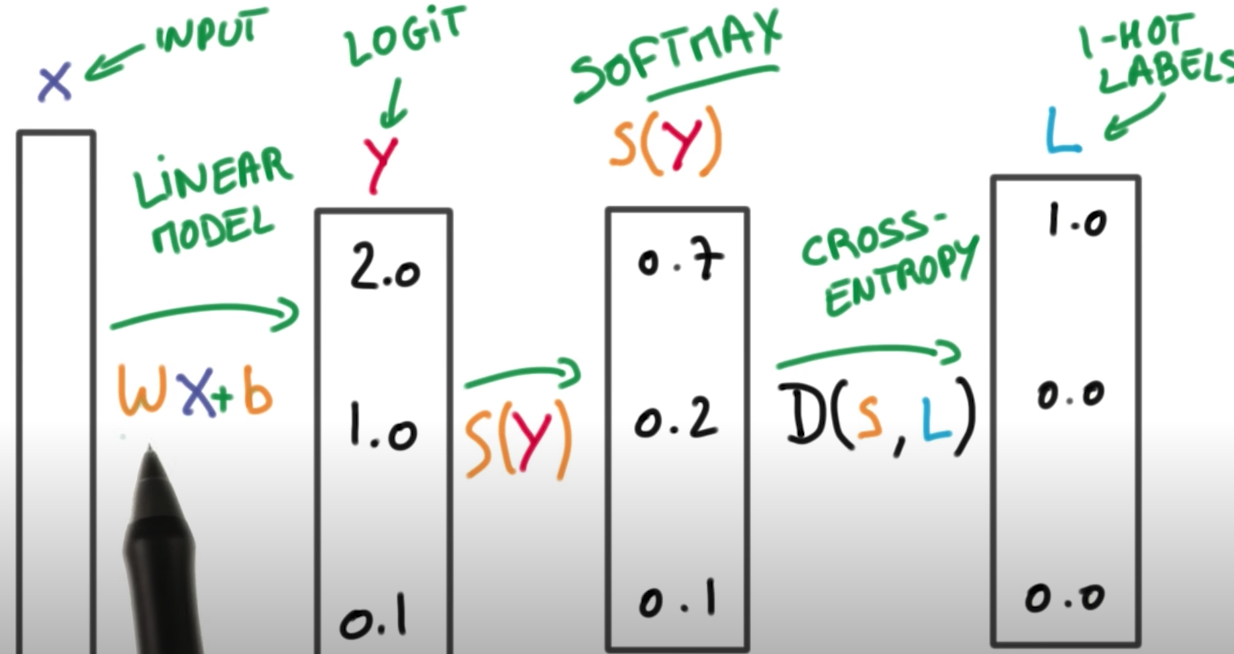 INPUT
X
LINEAR
MODEL
WX+b
LOGIT
Y
2.0
1.0
0.1
S(Y)
SOFTMAX
S(Y)
0.7
0.2
0.1
CROSS-
ENTROPY
D(S,L)
1-HOT
LABELS
L
1.0
0.0
0.0